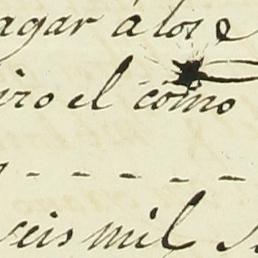 agar á los
iro el como
- - - - -
seis mil